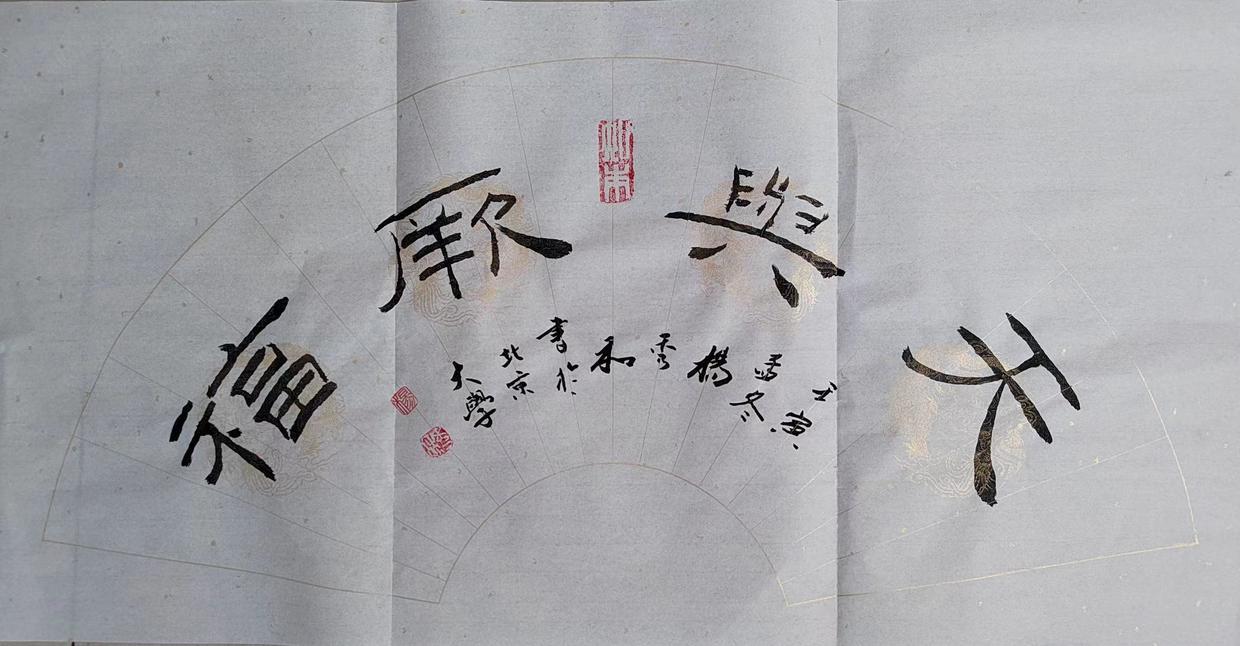 天與厥福
壬寅孟冬楊雲和書於北京大學